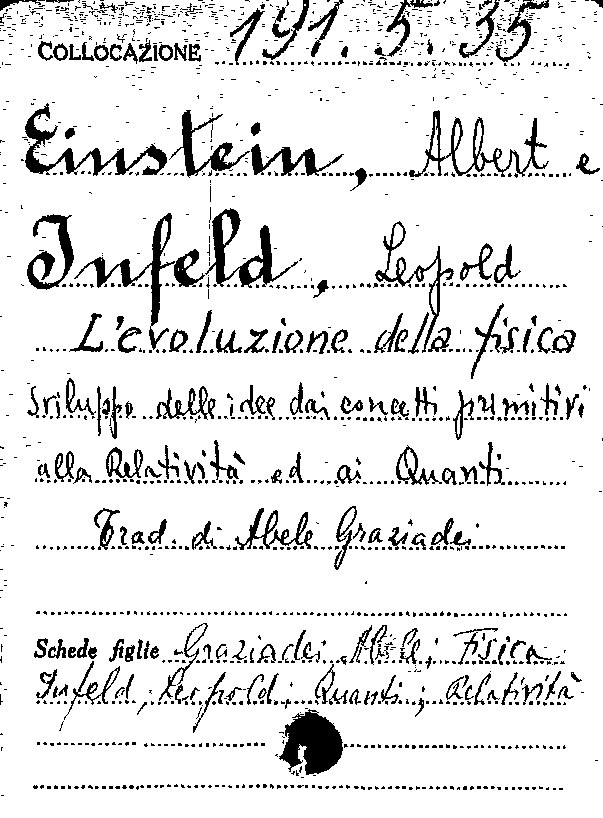 COLLOCAZIONE 191.5.35
Einstein, Albert e
Infeld, Leopold
L'evoluzione della fisica
Sviluppo delle idee dai concetti primitivi
alla Relatività ed ai Quanti
Trad. di Abele Graziadei
Schede figlie Graziadei Abele; Fisica
Infeld, Leopold; Quanti; Relatività